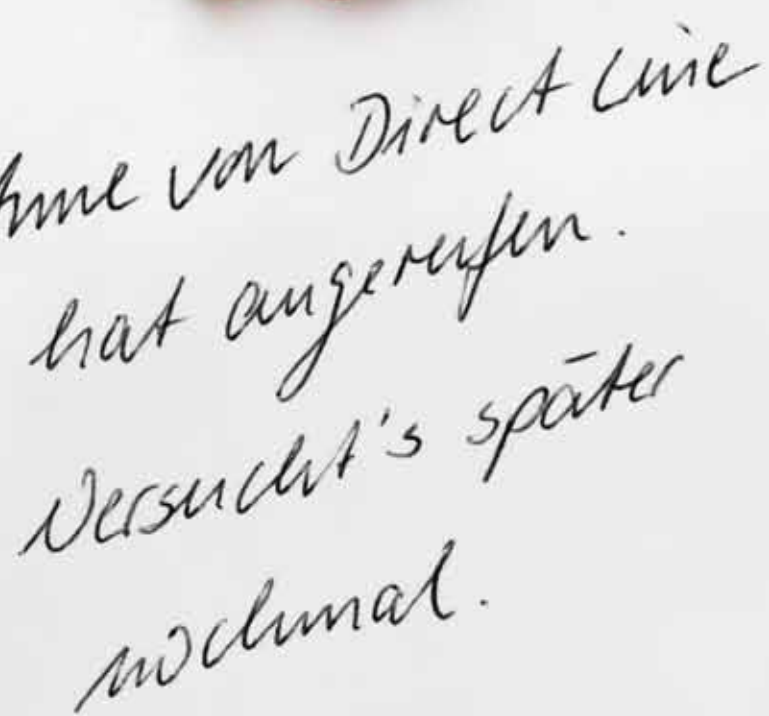 von Direct Line
hat angerufen.
Versucht's später
nochmal.